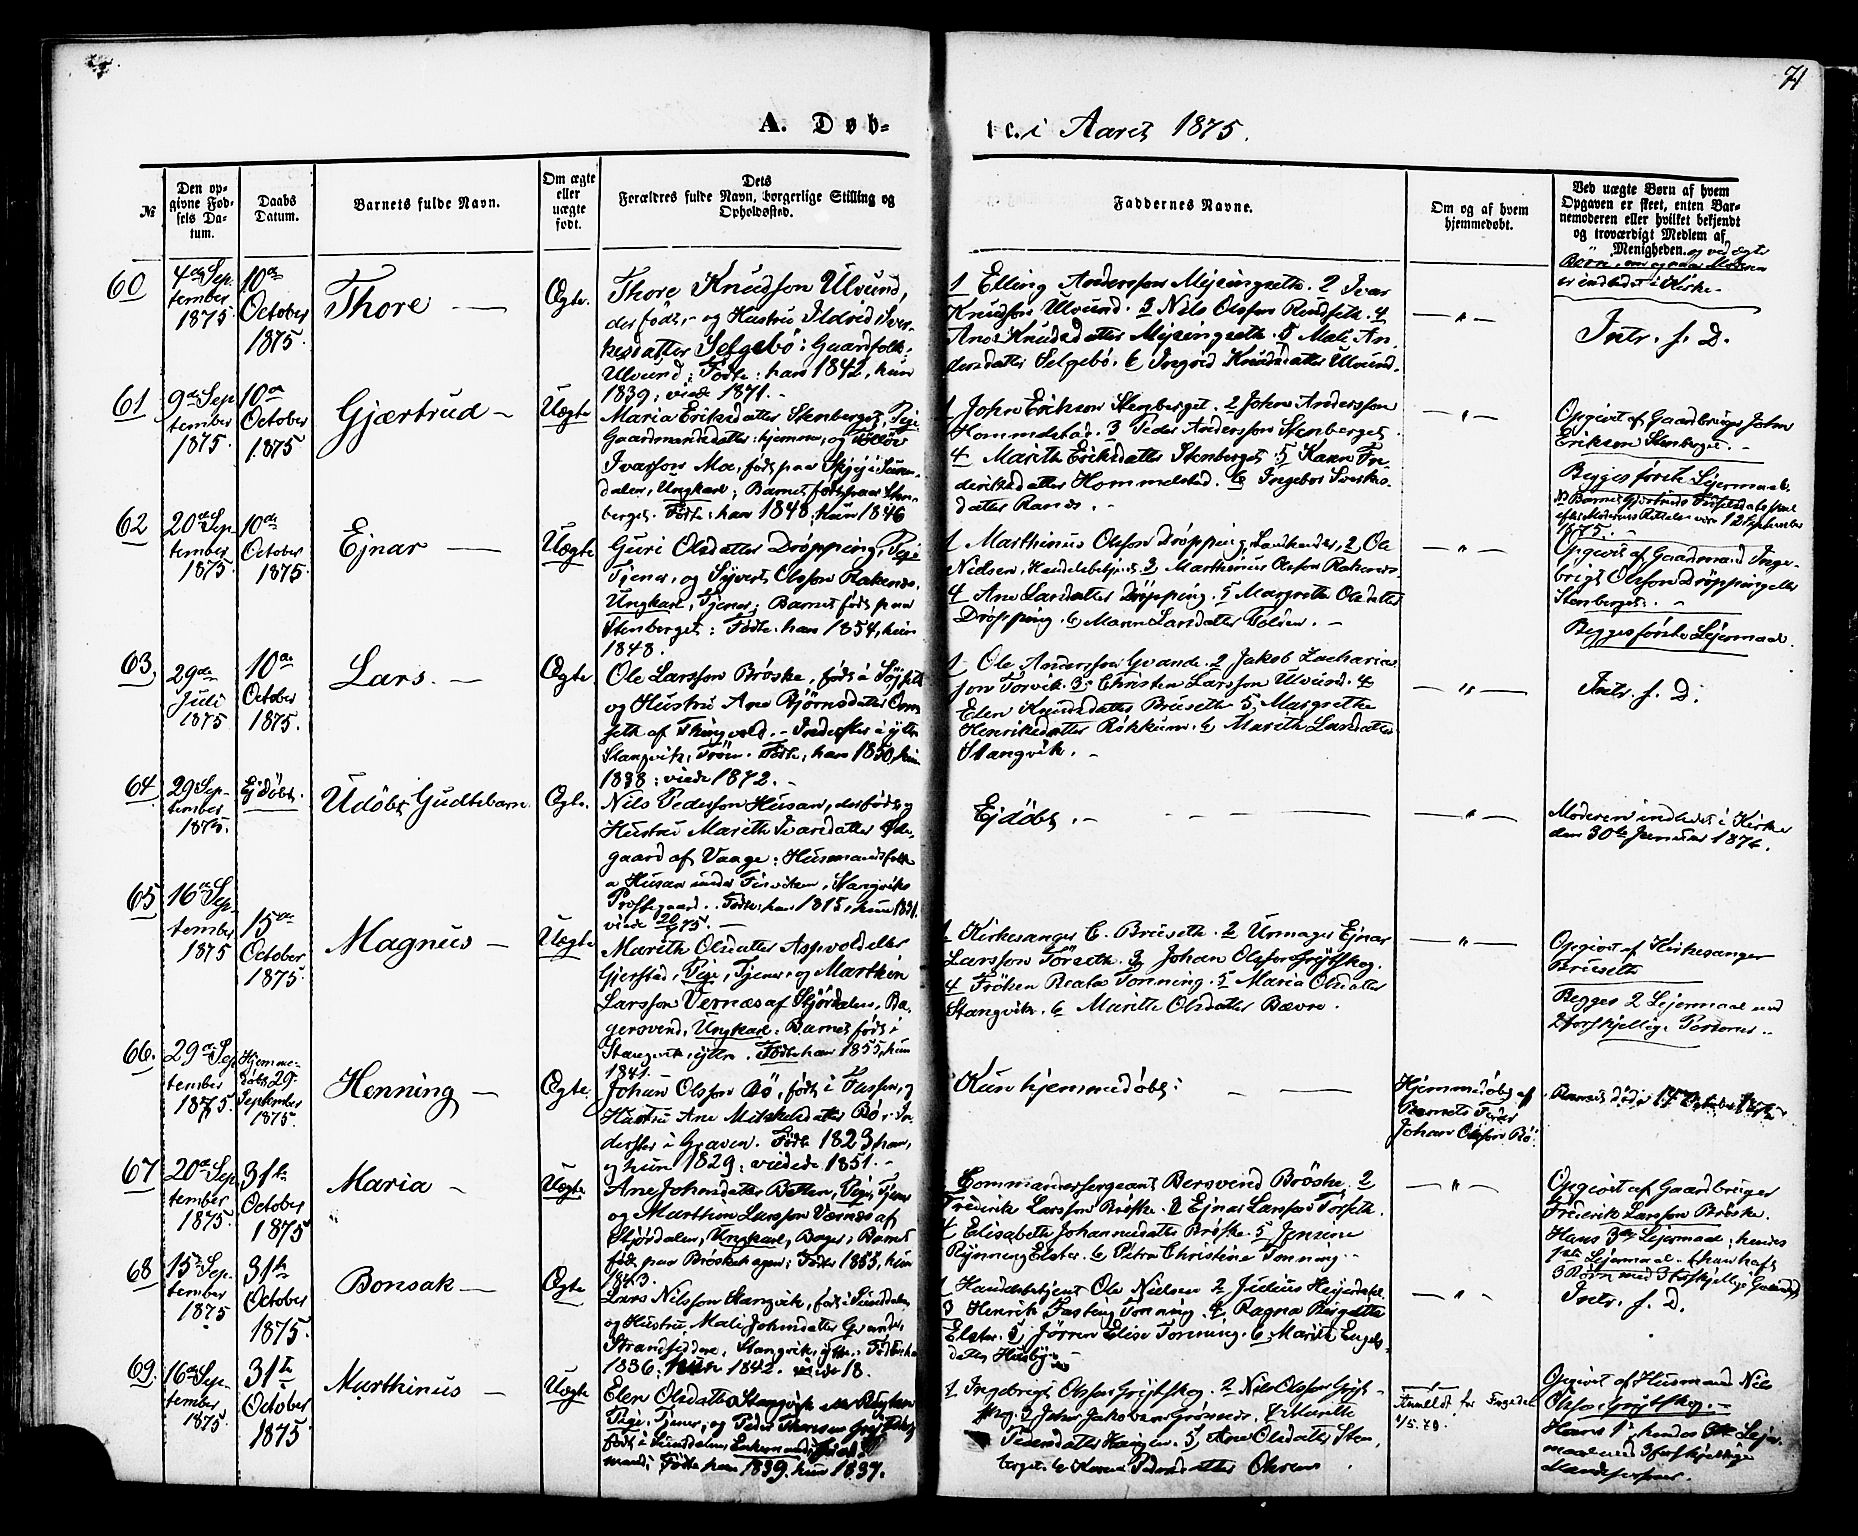 71
A. Døb-
te. i Aaret 1875.
№
Den op-
givne Fød-
sels Da-
tum.
Daabs
Datum.
Barnets fulde Navn.
Om ægte
eller
uægte
født.
Dets
Forældres fulde Navn, borgerlige Stilling og
Opholdssted.
Faddernes Navne.
Om og af hvem
hjemmedøbt.
Ved uægte Børn af hvem
Opgaven er skeet, enten Bar-
nemoderen eller hvilket bekjendt
og troværdigt Medlem af
Menigheden. og ved ægte
Børn, om og naar Moderen
er indledet i Kirke.
60
4de Sep
tember
1875
10de
October
1875.
Thore
Ægte.
Thore Knudson Ulvund,
der født, og Hustru Ildrid Siver-
hesdatter Selgebø: Gaardfolk:
Ulvund: Fødte: han 1842, hun
1839; viede 1871.
1 Elling Andersson Mejeingseth. 2 Ivar
Knudson Ulvund. 3 Nils Olsson Rendseth. 4
Ane Knudsdatter Mejeingseth. 5 Mali An-
dersdatter Selgebø. 6 Ingrid Knudsdatter Ulvund.
Intr. f. D.
61
9de Sep
tember
1875.
10de
October
1875
Gjærtrud
Uægte
Maria Eriksdatter Stenberget, Pige
Gaardmandsdatter: hjemme, og
Ivarson Mo, født paa i Suren-
dalen, Ungkarl; Barnet født paa Sten-
berget. Fødte: han 1848, hun 1846
1 John Erikson Stenberget. 2 John Andersson
Hommelstad. 3 Peder Andersson Stenberget
4 Marith Eriksdatter Stenberget 5 Karen Fre-
deriksdatter Hommelstad. 6 Ingebor Sivers-
datter Rands.
Opgivet af Gaardbruger John
Erikson Stenberget.
Begges første Lejermaal.
1875.
62
20de Sep
tember
1875
10de
October
1875
Ejnar
Uægte
Guri Olsdatter Drøpping, Pige
Tjener, og Syvert Olsson Rakenes
Ungkarl, Tjener; Barnet født paa
Stenberget: Fødte: han 1854, hun
1848.
1 Marthinus Olsson Drøpping, Landhandler, 2 Ole
Nielsen, Handelsbetjent 3 Marthinus Olsson Rakenes
4 Ane Larsdatter Drøpping. 5 Margrethe Olsdatter
Drøpping. 6 Maren Larsdatter Talsien.
Opgivet af Gaardmand Inge-
brigt Olsson Drøpping eller
Stenberget.
Begges første Lejermaal.
63
29de
Juli
1875
10de
October
1875.
Lars.
Ægte
Ole Larsson Brøske, født i
og Hustru Ane Bjørnsdatter
seth af Thingvold. Inderster i ytre
Stangvik, Trøen. Fødte, han 1850, hun
1838; viede 1872.
1 Ole Andersson Gvande. 2 Jakob Zacharias
son Torvik. 3 Christen Larsson Ulvund. 4
Elen Knudsdatter Brúseth 5 Margrethe
Henriksdatter Røkkum. 6 Marith Larsdatter
Stangvik.
Intr. f. D.
64
29 Sep-
tember
1875.
Ej døbt.
Udøbt Gudtebarn
Ægte.
Nils Pedersson Husan, der født, og
Hustru Marith Ivarsdatter Øde-
gaard af Vaage: Husmandsfolk
a Husan under , Stangviks
Præstegaard. Fødte: han 1815, hun 1831.
viede 20/6 75.
Ej døbt.
Moderen indledet i Kirke
den 30te Januar 1876.
65
16de Sep-
tember
1875
15de
October
1875.
Magnus
Uægte
Marith Olsdatter Aspvold eller
Gjerstad, Pige, Tjener, og Marthin
Larsson Vernæs af Stjørdalen, Ba-
gersvend, Ungkarl: Barnet født i
Stangvik, ytre. Fødte han 1855, hun
1841.
1 Kirkesanger C. Brúseth. 2 Urmager Ejnar
Larsson Torseth. 3 Johan Olsson Grytskog.
4 Frøken Beata Tonning. 5 Maria Olsdatter
Stangvik. 6 Marith Olsdatter Bævre.
Opgivet af Kirkesanger
Brúseth
Begges 2 Lejermaal med
2 forskjellige Personer.
66.
29de Sep
tember
1875.
Hjemme-
døbt 29.
September
1875.
Henning
Ægte.
Johan Olsson Bø, født i , og
Hustru Ane Mikkelsdatter Bø. In-
derster i Graven. Fødte 1823 han,
og hun 1829; viede 1851.
Kun hjemmedøbt.
Hjemmedøbt af
Barnets Fader
Johan Olsson Bø.
Barnet døde
67
20de Sep
tember
1875.
31te
October
1875
Maria
Uægte
Ane Johnsdatter Betten, Pige, Tjener
og Marthin Larsson Værnæs af
Stjørdalen, Ungkarl, Bager; Barnet
født paa Brøskehagen; Fødte: 1855, hun
1843.
1 Commandersergeant Bersvend Brøske. 2
Frederik Larsson Brøske. 3 Ejnar Larsson Torseth.
4 Elisabeth Johannesdatter Brøske. 5 Jensine
Rynning Elster. 6 Petra Christine Tonning.
Opgivet af Gaardbruger
Frederik Larsson Brøske.
Hans 3die Lejermaal; hendes
1ste Lejermaal.
3 Børn med 3 forskjellige
68
15de Sep.
tember
1875
31te
October
1875.
Bonsak
Ægte
Lars Nilsson Stangvik, født i Sundalen
og Hustru Mali Johnsdatter Gvande,
Strandsiddere, Stangvik, ytre. Fødte: han
1836, hun 1842. viede 18.
1 Handelsbetjent Ole Nielsen 2 Julius Hejerdahl.
3 Henrik Fasting Tonning. 4 Ragna Birgitte
Elster. 5 Jørren Elise Tonning. 6 Marith Engels-
datter Husby.
Intr. f. D.
69.
16de Sep-
tember
1875.
31te
October
1875
Marthinus
Uægte
Elen Olsdatter Stangvik eller
Pige, Tjener, og Peder Thoresen
født i Sundalen,
mand; Fødte han 1839. hun 1837.
1 Ingebrigt Olsson Grytskog. 2 Nils Olsson Gryt-
skog. 3 John Jakobsson Grønnes. 4 Marith
Pedersdatter Haugen. 5 Ane Olsdatter Sten
berget. 6 Karen Pedersdatter Øksen
Anmeldt for Fogeden
1/5.79.
Opgivet af Husmand Nils
Olsson Grytskog.
Hans 1, hendes 3die Lejer-
maal med 3 forskjellige
Mandspersoner.